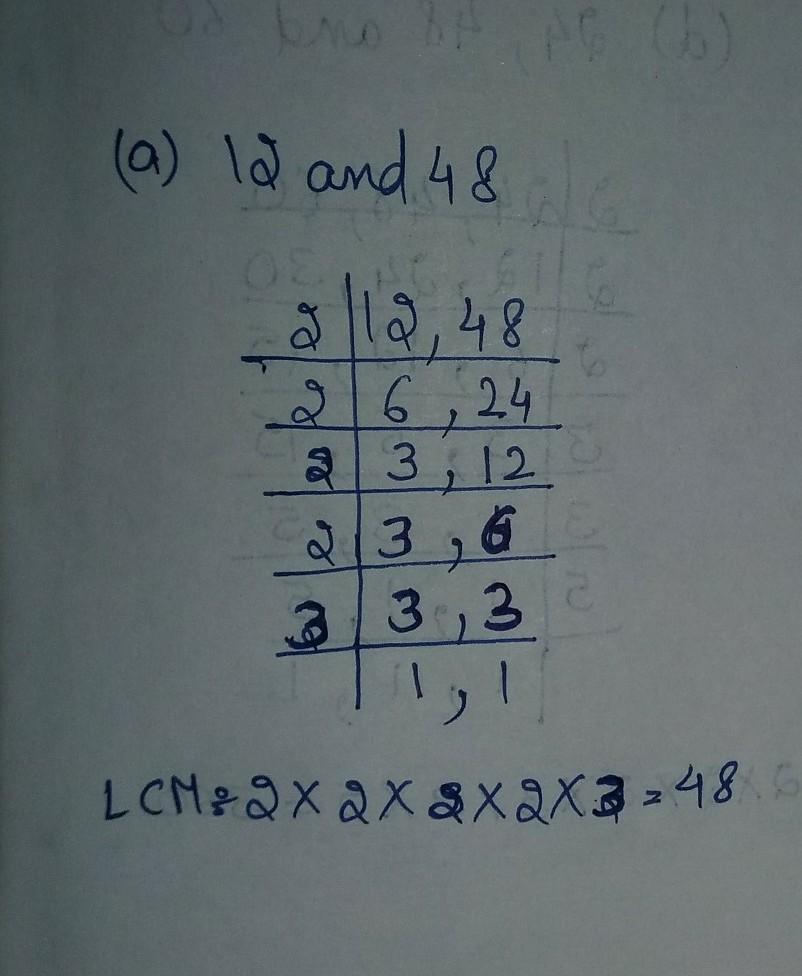 (a) 12 and 48
2 | 12, 48
2 | 6, 24
2 | 3, 12
2 | 3, 6
3 | 3, 3
| 1, 1
LCM = 2 X 2 X 2 X 2 X 3 = 48